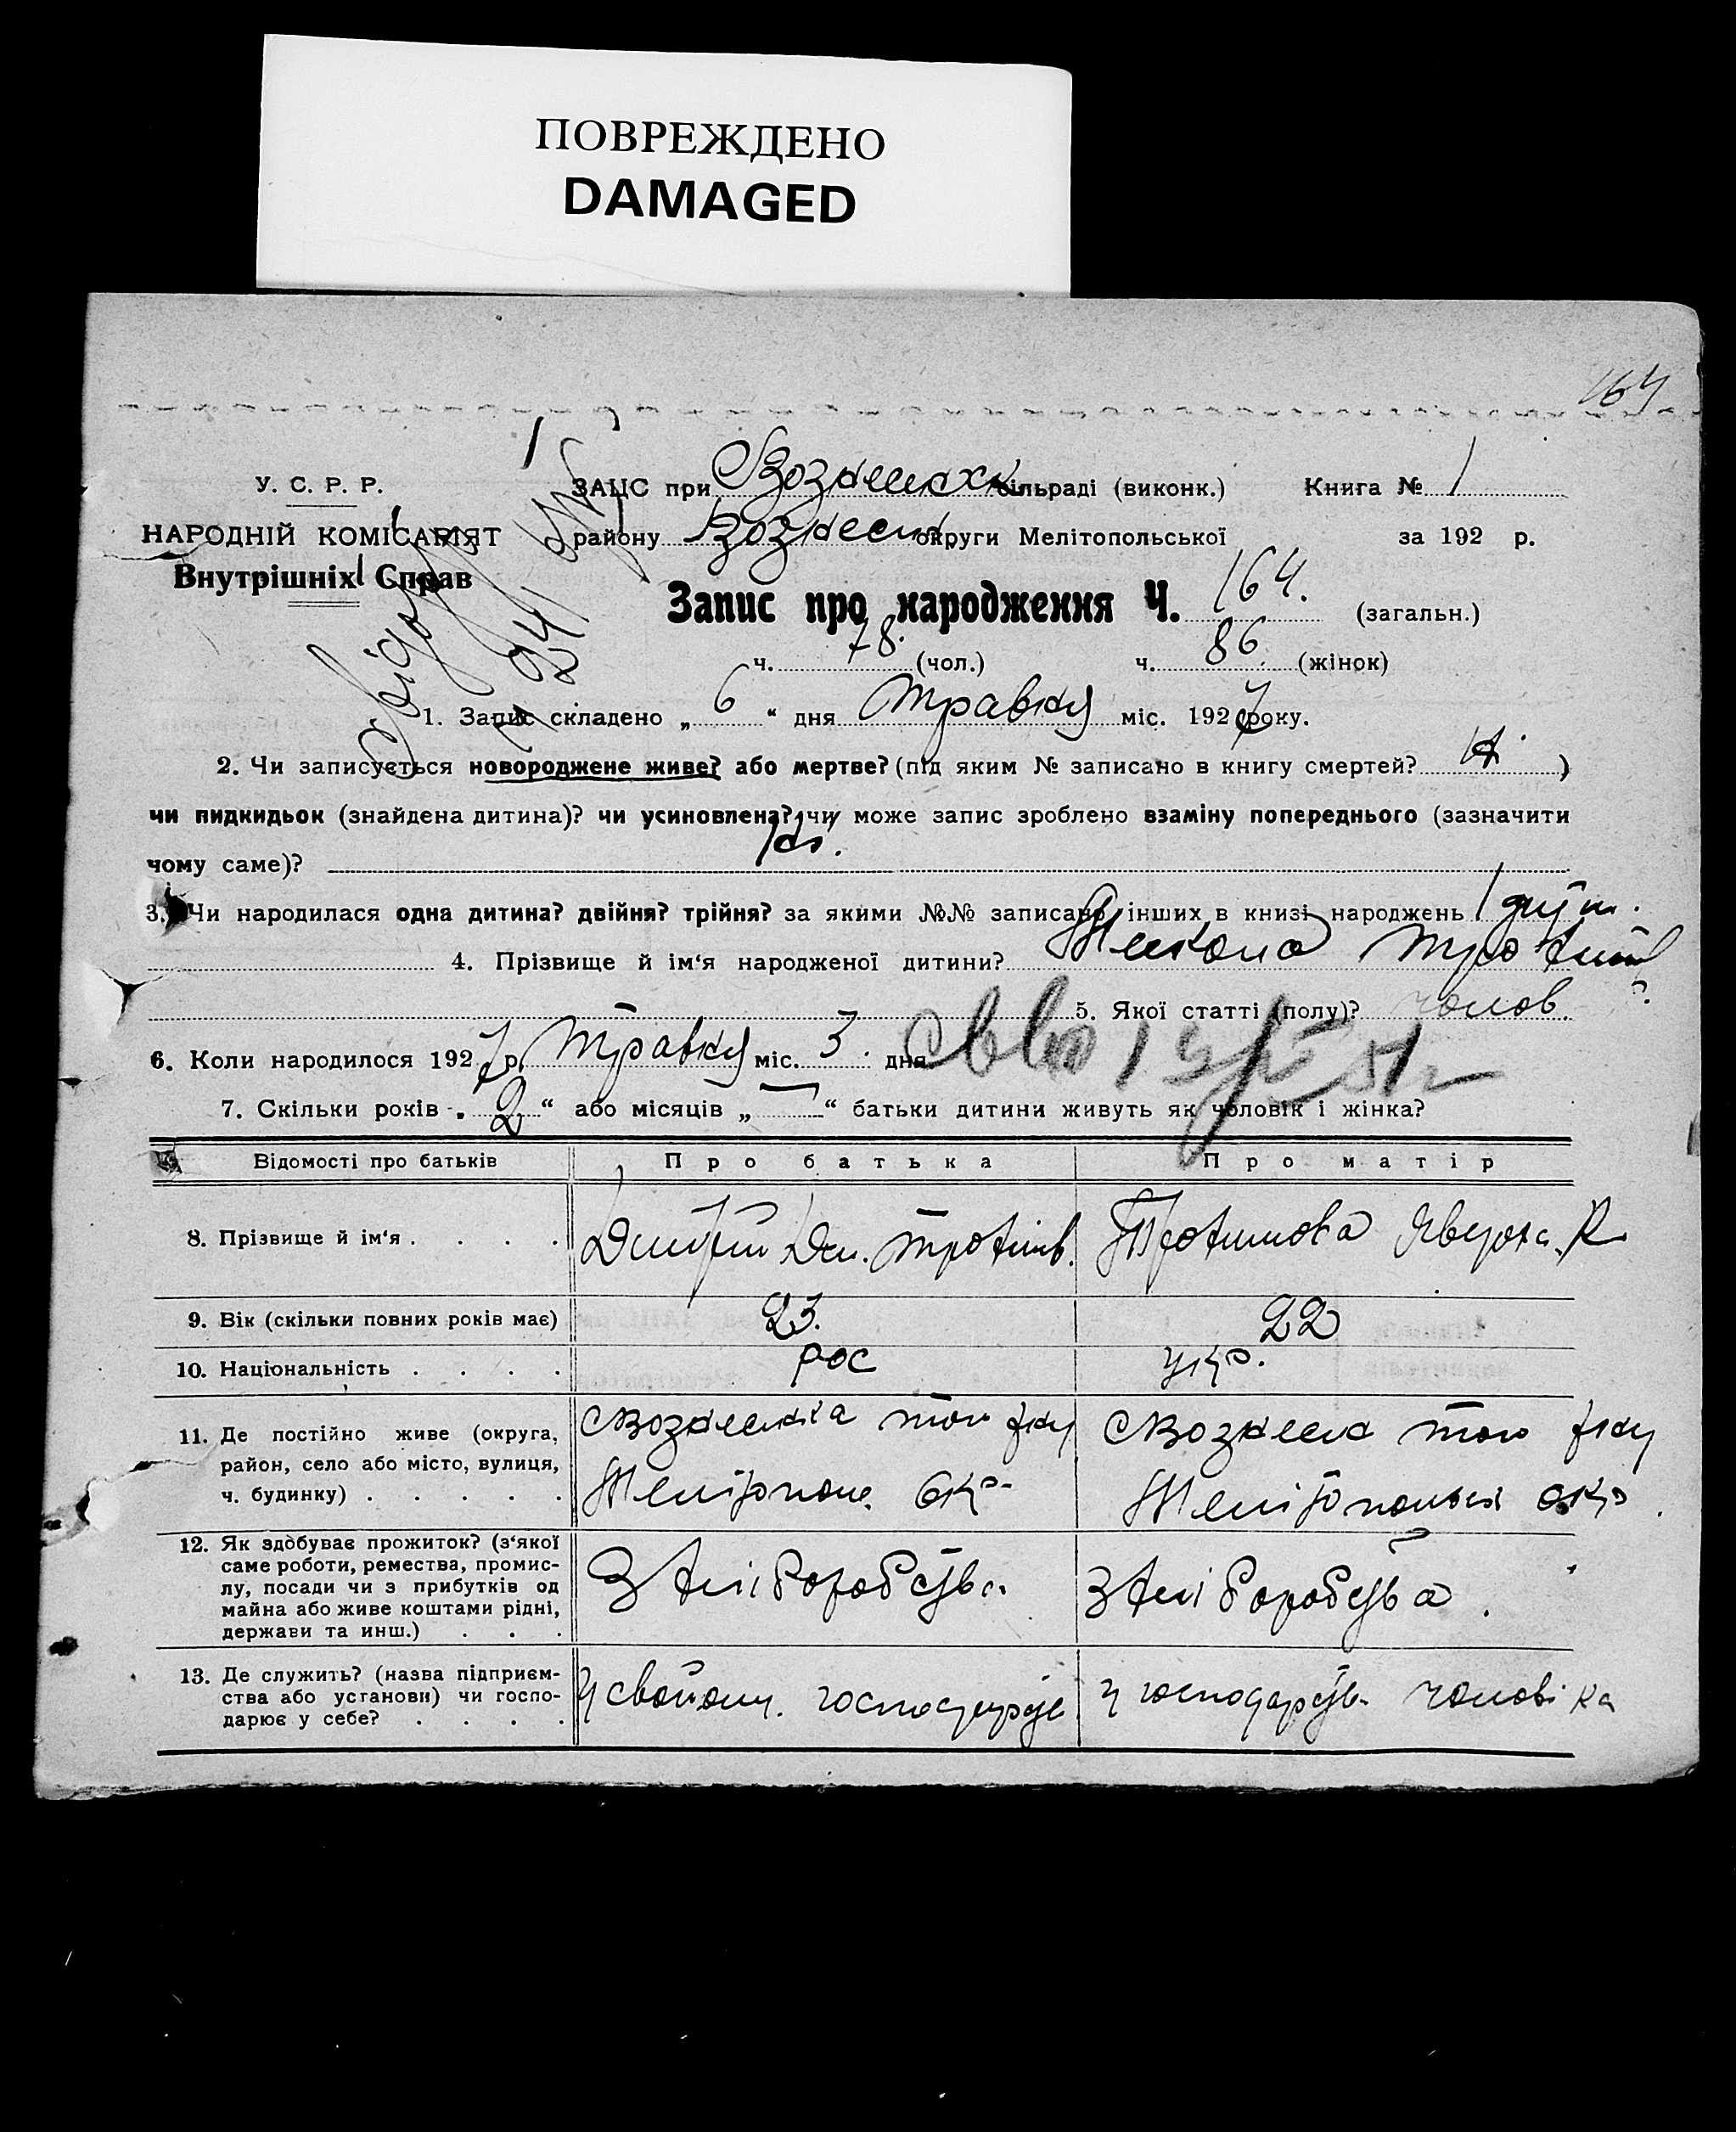 ПОВРЕЖДЕНО
DAMAGED
164
У. С. Р. Р.
НАРОДНІЙ КОМІСАРІЯТ
Внутрішніх Справ
ЗАЦС при сільраді (виконк.) Книга № 1
району Вознесен. округи Мелітопольської за 192 р.
Запис про народження Ч. 164. (загальн.)
ч. 78. (чол.) ч. 86. (жінок)
1. Запис складено „ 6 “ дня травня міс. 1927 року.
2. Чи записується новороджене живе? або мертве? (під яким № записано в книгу смертей? )
чи пидкидьок (знайдена дитина)? чи усиновлена? чи може запис зроблено взаміну попереднього (зазначити
чому саме)? Ні.
3. Чи народилася одна дитина? двійня? трійня? за якими №№ записано інших в книзі народжень 1 дит.
4. Прізвище й ім‘я народженої дитини? Микола
5. Якої статті (полу)? чолов.
6. Коли народилося 1927 р. травня міс. 3 дня
7. Скільки років „ 2 “ або місяців „ — “ батьки дитини живуть як чоловік і жінка?
Відомості про батьків Про батька Про матір
8. Прізвище й ім‘я . . . . Дмитрій Дм.
9. Вік (скільки повних років має) 23. 22
10. Національність . . . . рос укр.
11. Де постійно живе (округа, район, село або місто, вулиця, ч. будинку) . . . . . Вознесенка того р-ну Мелітопол. окр. Вознесен того р-ну Мелітопольск окр.
12. Як здобуває прожиток? (з‘якої саме роботи, ремества, промислу, посади чи з прибутків од майна або живе коштами рідні, держави та инш.) . . . З хліборобства З хліборобства.
13. Де служить? (назва підприємства або установи) чи господарює у себе? . . . . У своєму господарстві У господарстві чоловіка